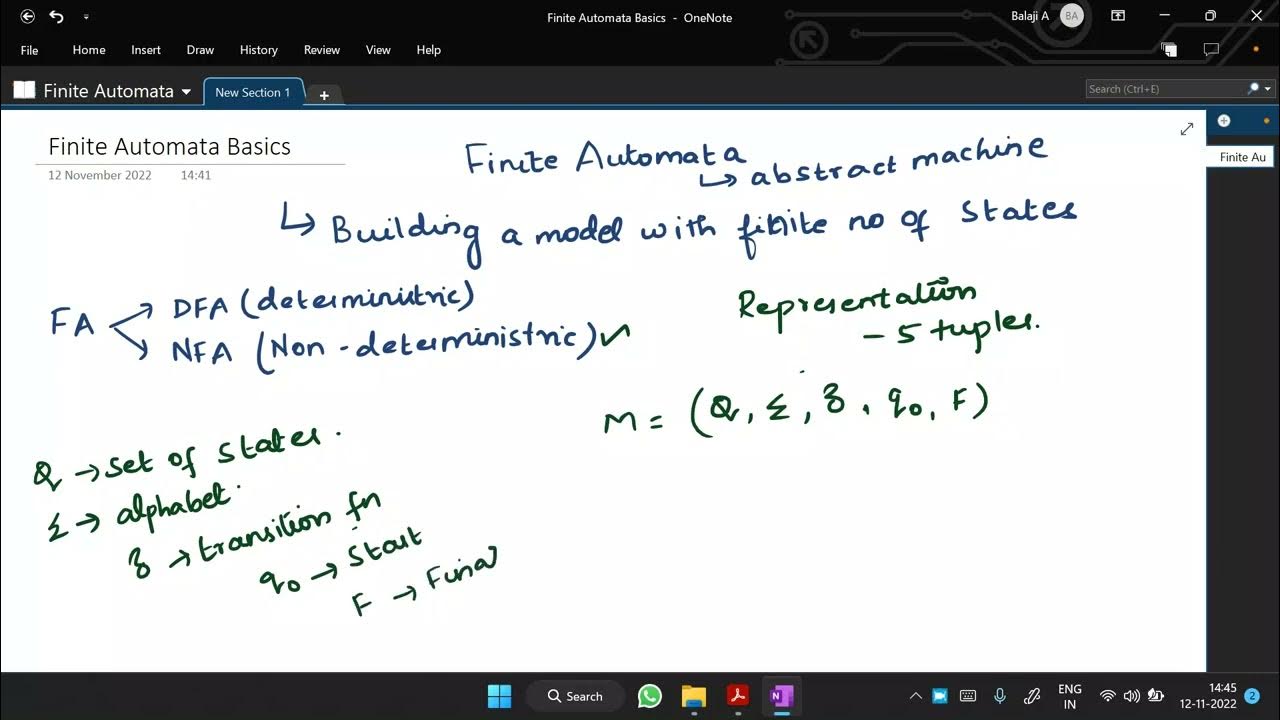 Finite Automata Basics - OneNote
Balaji A
BA
File Home Insert Draw History Review View Help
Finite Automata
New Section 1
+
Search (Ctrl+E)
Finite Automata Basics
12 November 2022 14:41
Finite Au
Finite Automata
↳ abstract machine
↳ Building a model with finite no of states
FA
DFA (deterministric)
NFA (Non-deterministric) ✓
Representation
- 5 tuples.
M = (Q, Σ, δ, q0, F)
Q → set of states.
Σ → alphabet.
δ → transition fn
q0 → Start
F → Final
Search
ENG
IN
14:45
12-11-2022
2